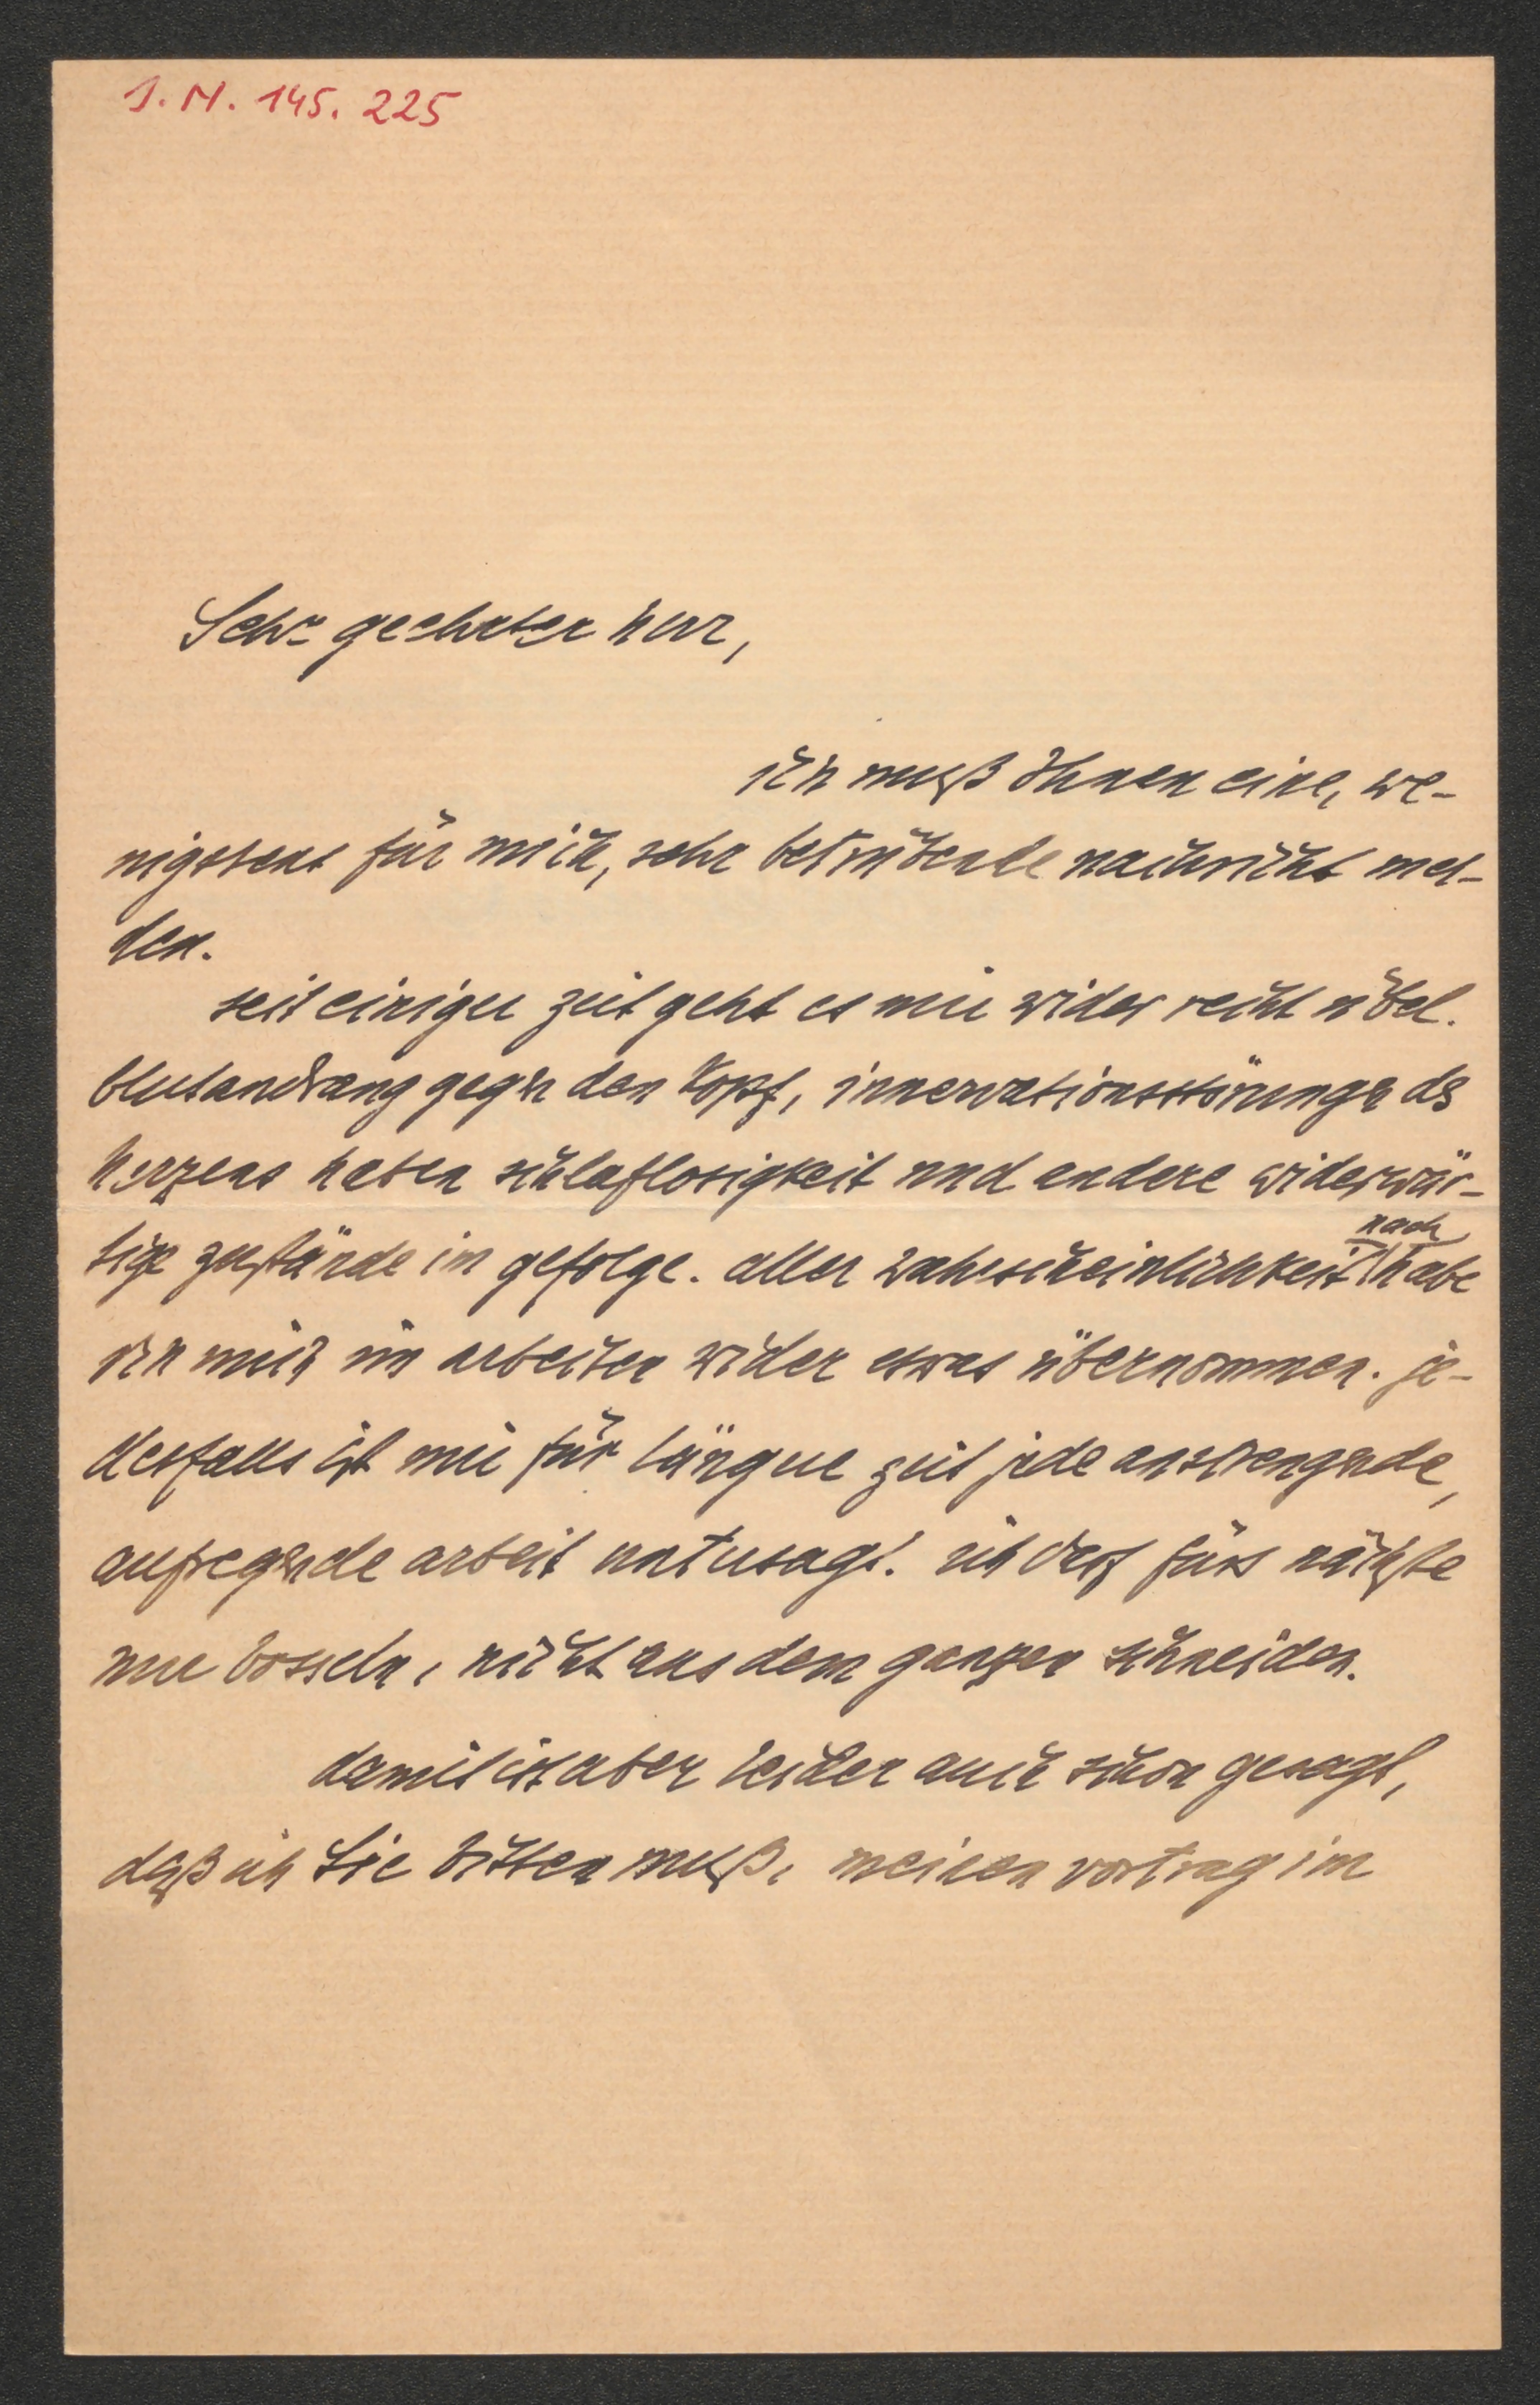 I. N. 145. 225
Sehr geehrter herr,
ich muß Ihnen eine, we-
nigstens für mich, sehr betrübende nachricht mel-
den.
seit einiger zeit geht es mir wider recht übel.
blutandrang gegen den kopf, innervationsstörungen des
herzens haben schlaflosigkeit und andere widerwär-
tige zustände im gefolge. aller wahrscheinlichkeit nach habe
ich mich im arbeiten wider etwas übernommen. je-
desfalls ist mir für längere zeit jede anstrengende,
aufregende arbeit untersagt. ich darf fürs nächste
nur bosseln, nicht aus dem ganzen schneiden.
damit ist aber leider auch schon gesagt,
daß ich Sie bitten muß, meinen vortrag im